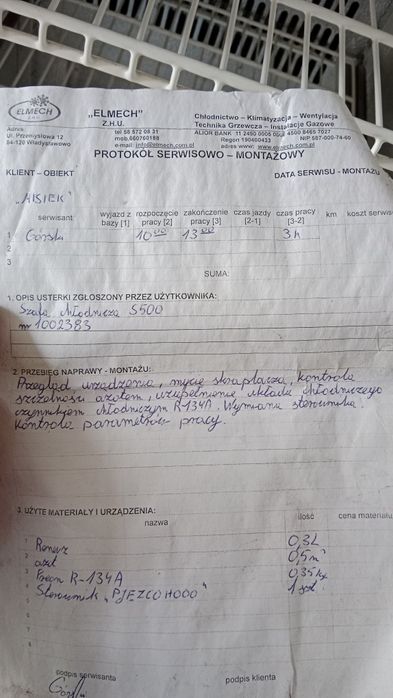 ELMECH
Z.H.U.
„ELMECH"
Z.H.U.
Chłodnictwo – Klimatyzacja – Wentylacja
Technika Grzewcza – Instalacje Gazowe
Adres:
ul. Przemysłowa 12
84-120 Władysławowo
tel 58 572 08 31
mob.660760188
e-mail: info@elmech.com.pl
ALIOR BANK 11 2490 0005 0000 4500 8465 7027
Regon 190460433 NIP 587-000-74-60
adres www: www.elmech.com.pl
PROTOKÓŁ SERWISOWO – MONTAŻOWY
KLIENT – OBIEKT DATA SERWISU - MONTAŻU
serwisant wyjazd z bazy [1] rozpoczęcie pracy [2] zakończenie pracy [3] czas jazdy [2-1] czas pracy [3-2] km koszt serwisu
1 Górski 10 00 13 00 3h
2
3
SUMA:
1. OPIS USTERKI ZGŁOSZONY PRZEZ UŻYTKOWNIKA:
Szafa chłodnicza S500
nr 1002383
2. PRZEBIEG NAPRAWY - MONTAŻU:
Przegląd urządzenia, mycie skraplacza, kontrola
szczelności azotem, uzupełnienie układu chłodniczego
czynnikiem chłodniczym R-134A. Wymiana sterownika.
Kontrola parametrów pracy.
3. UŻYTE MATERIAŁY I URZĄDZENIA:
nazwa ilość cena materiału
1 0,3L
2 azot 0,5m³
3 Freon R-134A 0,35kg
4 Sterownik „PJEZC0H000" 1 szt.
5
6
7
8
podpis serwisanta podpis klienta